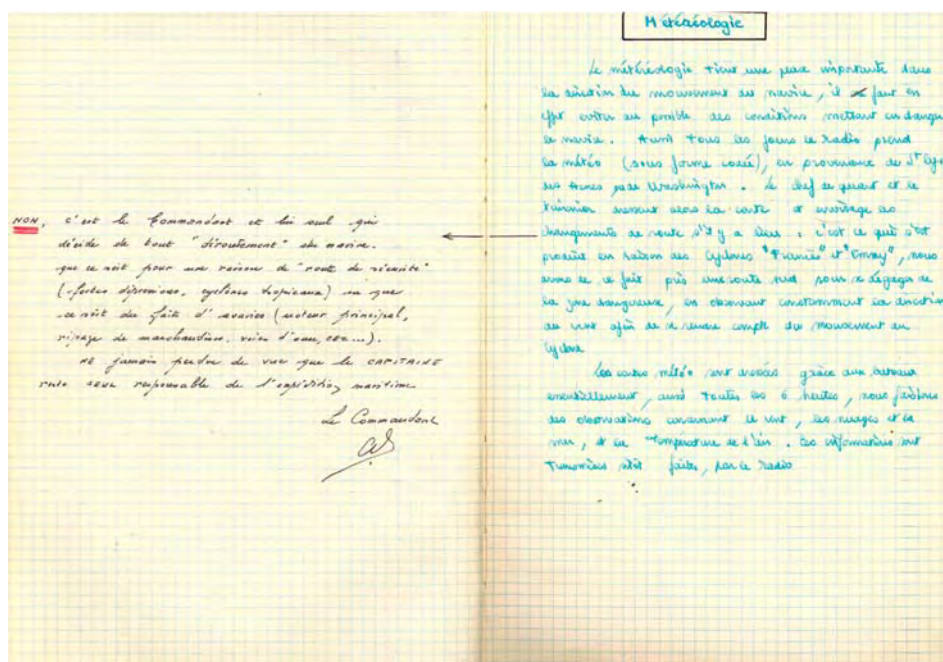 NON, c'est le Commandant et lui seul qui
décide de tout "déroutement" du navire.
que ce soit pour une raison de "route de sécurité"
(fortes dépressions, cyclones tropicaux) ou que
ce soit du fait d'avaries (moteur principal,
ripage de marchandises, voies d'eau, etc...).
NE jamais perdre de vue que le CAPITAINE
reste seul responsable de l'expédition maritime
Le Commandant
Météréologie
La météréologie tient une place importante dans
la direction du mouvement du navire, il faut en
effet eviter au possible des conditions mettant en danger
le navire. Aussi tous les jours le Radio prend
la météo (sous forme codée), en provenance de St Lys
les Arnes, de Washington. Le chef de quart et le
envisage les
changements de route s'il y a lieu : c'est ce qui s'est
produit en raison des Cyclones "Francès" et "Emmy", nous
avons de ce fait pris une route sud pour se dégager de
la zone dangereuse, en observant constamment la direction
du vent afin de se rendre compte du mouvement du
Cyclone
Les cartes météo sont dressées grâce aux bureaux
essentiellement, aussi toutes les 6 heures, nous faisons
des observations concernant le vent, les nuages et la
mer, et la température de l'air. Les informations sont
transmises sitôt faites, par le Radio